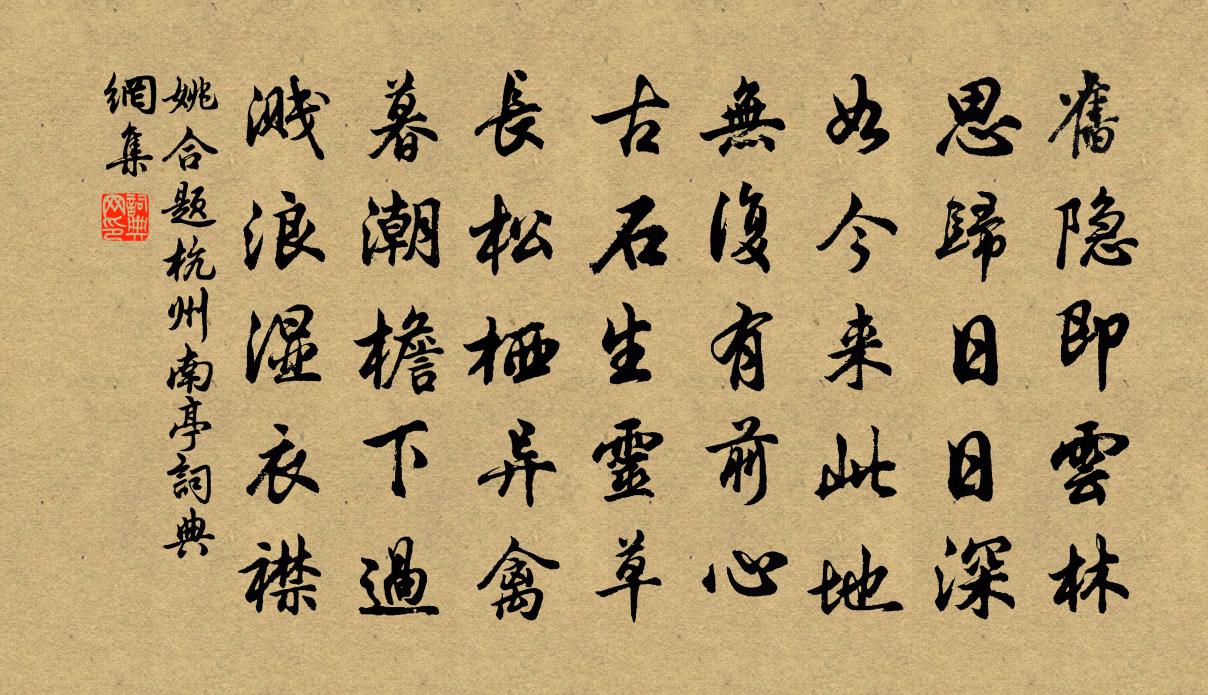 舊隐即雲林
思歸日日深
如今来此地
無復有前心
古石生靈草
長松栖异禽
暮潮檐下過
溅浪濕衣襟
姚合题杭州南亭詞典
網集
詞典网印